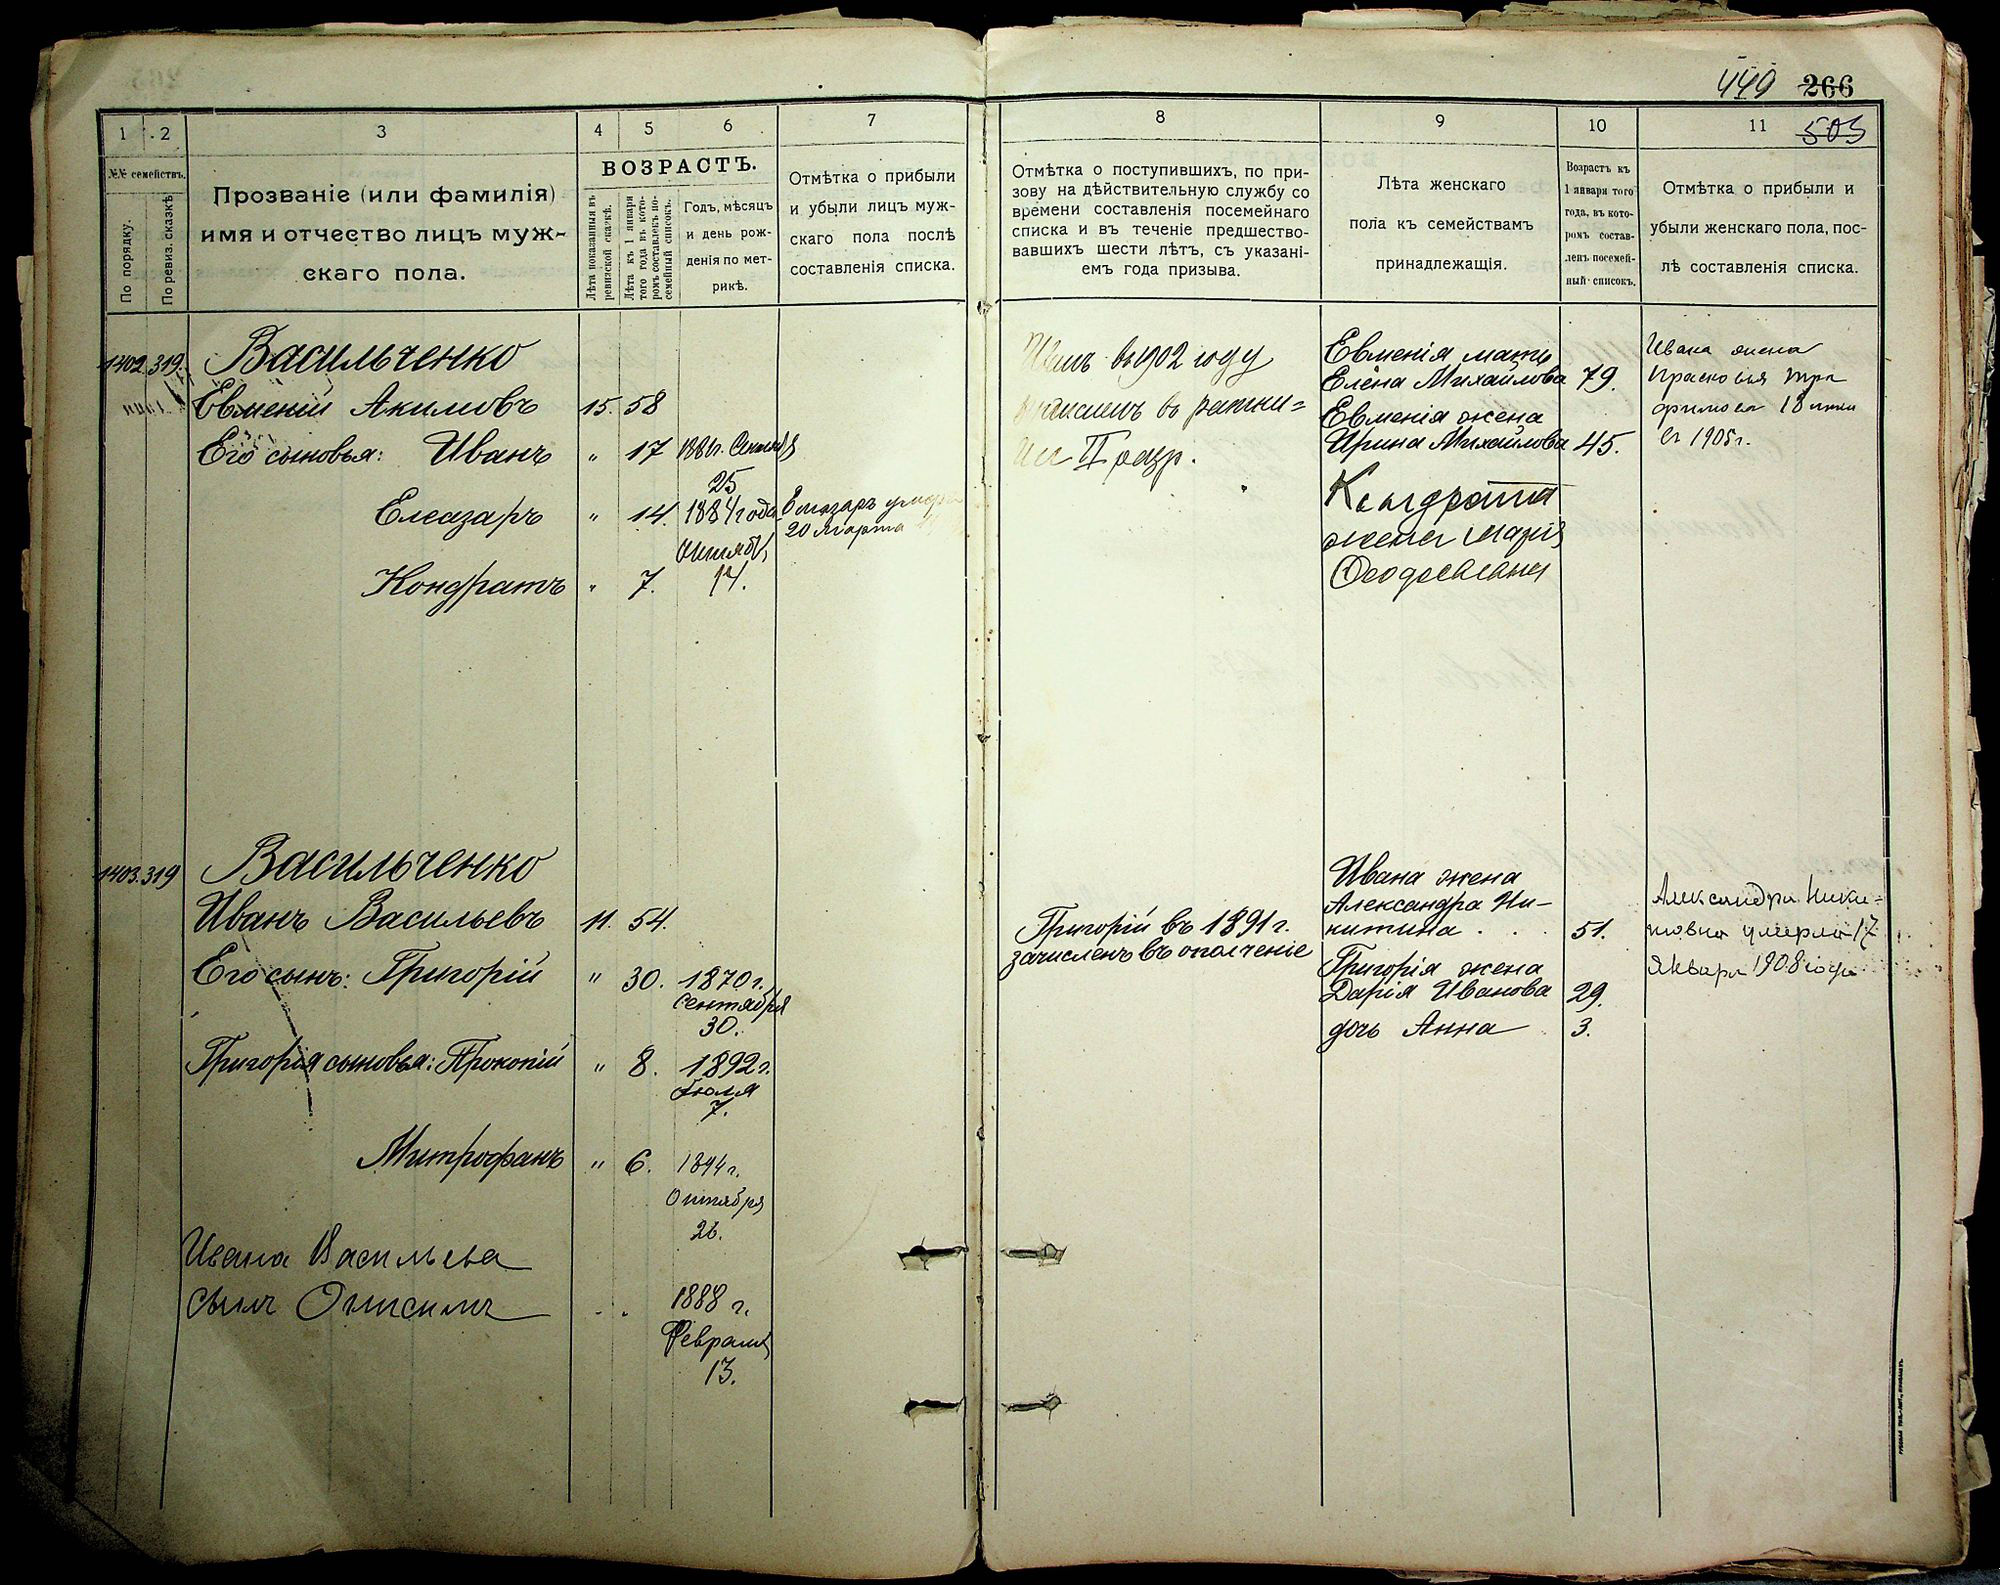 449 266
505
1
2
3
4
5
6
7
8
9
10
11
№№ семействъ.
По порядку.
По ревиз. сказкѣ
Прозваніе (или фамилія)
имя и отчество лицъ муж-
скаго пола.
ВОЗРАСТЪ.
Лѣта показанныя въ
ревизской сказкѣ.
Лѣта къ 1 января
того года въ кото-
ромъ составленъ по-
семейный списокъ.
Годъ, мѣсяцъ
и день рож-
денія по мет-
рикѣ.
Отмѣтка о прибыли
и убыли лицъ муж-
скаго пола послѣ
составленія списка.
Отмѣтка о поступившихъ, по при-
зову на дѣйствительную службу со
времени составленія посемейнаго
списка и въ теченіе предшество-
вавшихъ шести лѣтъ, съ указані-
емъ года призыва.
Лѣта женскаго
пола къ семействамъ
принадлежащія.
Возрастъ къ
1 января того
года, въ кото-
ромъ состав-
ленъ посемей-
ный списокъ.
Отмѣтка о прибыли и
убыли женскаго пола, пос-
лѣ составленія списка.
1402. 319. Васильченко
Евменій Акимовъ 15. 58
Его сыновья: Иванъ " 17
25
Елеазаръ " 14. 1884 года
Октября
Кондратъ " 7. 14.
Елеазаръ
20 Марта
въ 1902 году
въ ратни=
II разр.
Евменія мать
Елена Михайлова 79.
Евменія жена
Ирина Михайлова 45.
Кондрата
жена Марія
Ивана жена
Прасковья Тро
фимова 18
1905 г.
1403. 319 Васильченко
Иванъ Васильевъ 11. 54.
Его сынъ: Григорій " 30. 1870 г.
Сентября
30.
Григорія сыновья: Прокопій " 8. 1892 г.
Іюля
7.
Митрофанъ " 6. 1894 г.
Октября
26.
Ивана Васильева
сынъ Онисимъ 1888 г.
Февраля
13.
Григорій въ 1891 г.
зачисленъ въ ополченіе
Ивана жена
Александра Ни-
китина . . . 51.
Григорія жена
Дарія Иванова 29.
дочь Анна 3.
Александра Ники=
товна умерла 17
Января 1908 года